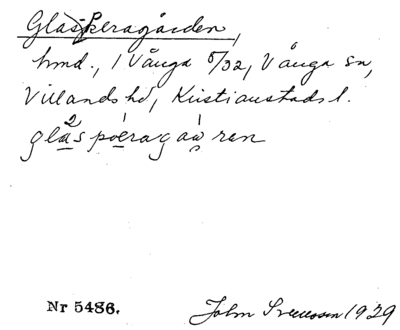 Glasperagården,
hmd., 1 Vånga 5/32, Vånga sn,
Villands hd, Kristianstads l.
Nr 5486. John Svensson 1929